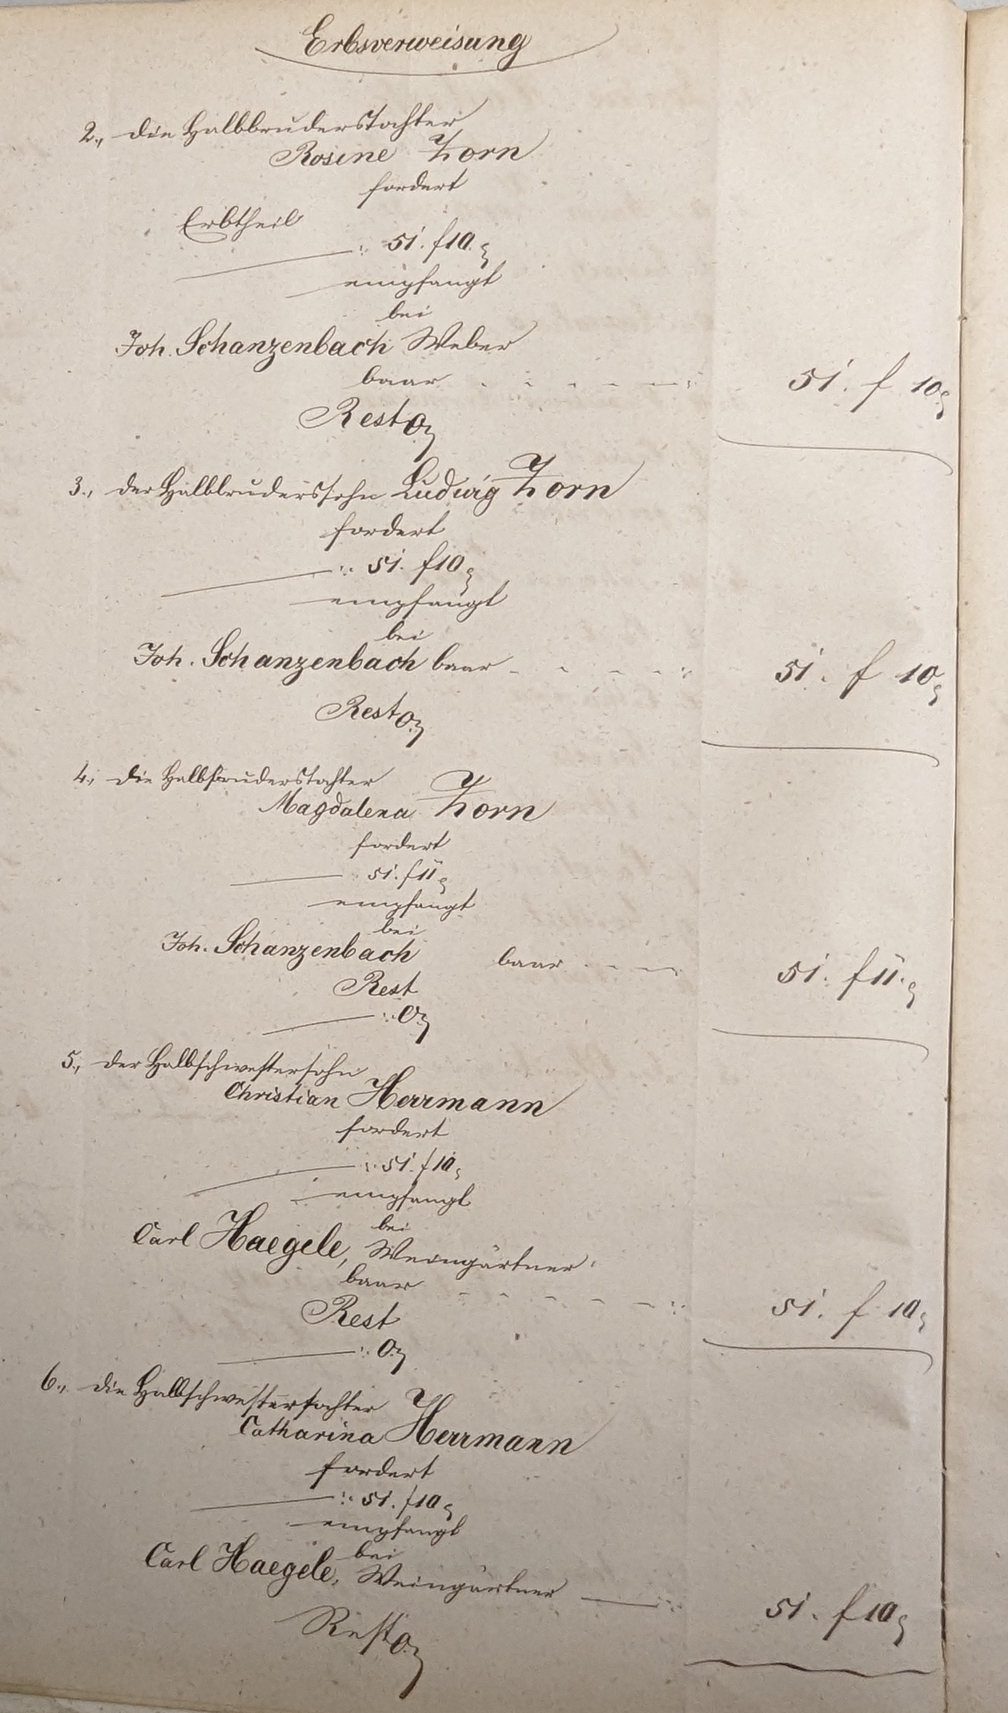 Erbsverweisung
2., die Halbbruderstochter
Rosine Zorn
fordert
Erbtheil
51. f 10.
empfangt
bei
Joh. Schanzenbach Weber
baar 51. f 10
Rest 0
3., der Halbbruderssohn Ludwig Zorn
fordert
51. f 10
empfangt
bei
Joh. Schanzenbach baar 51. f 10
Rest 0
4., die Halbbruderstochter
Magdalena Zorn
fordert
51. f 11
empfangt
bei
Joh. Schanzenbach baar 51. f 11.
Rest
0
5., der Halbschwestersohn
Christian Herrmann
fordert
51. f 10
empfangt
bei
Carl Haegele, Weingärtner
baar 51. f 10
Rest
0
6., die Halbschwestertochter
Catharina Herrmann
fordert
51. f 10
empfangt
bei
Carl Haegele, Weingärtner 51. f 10
Rest 0